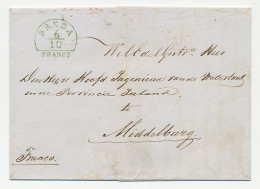 BREDA
6/10
FRANCO
Den Heer Hoofd Ingenieur van de Waterstaat
in de Provincie Zeeland
te
Middelburg
Franco